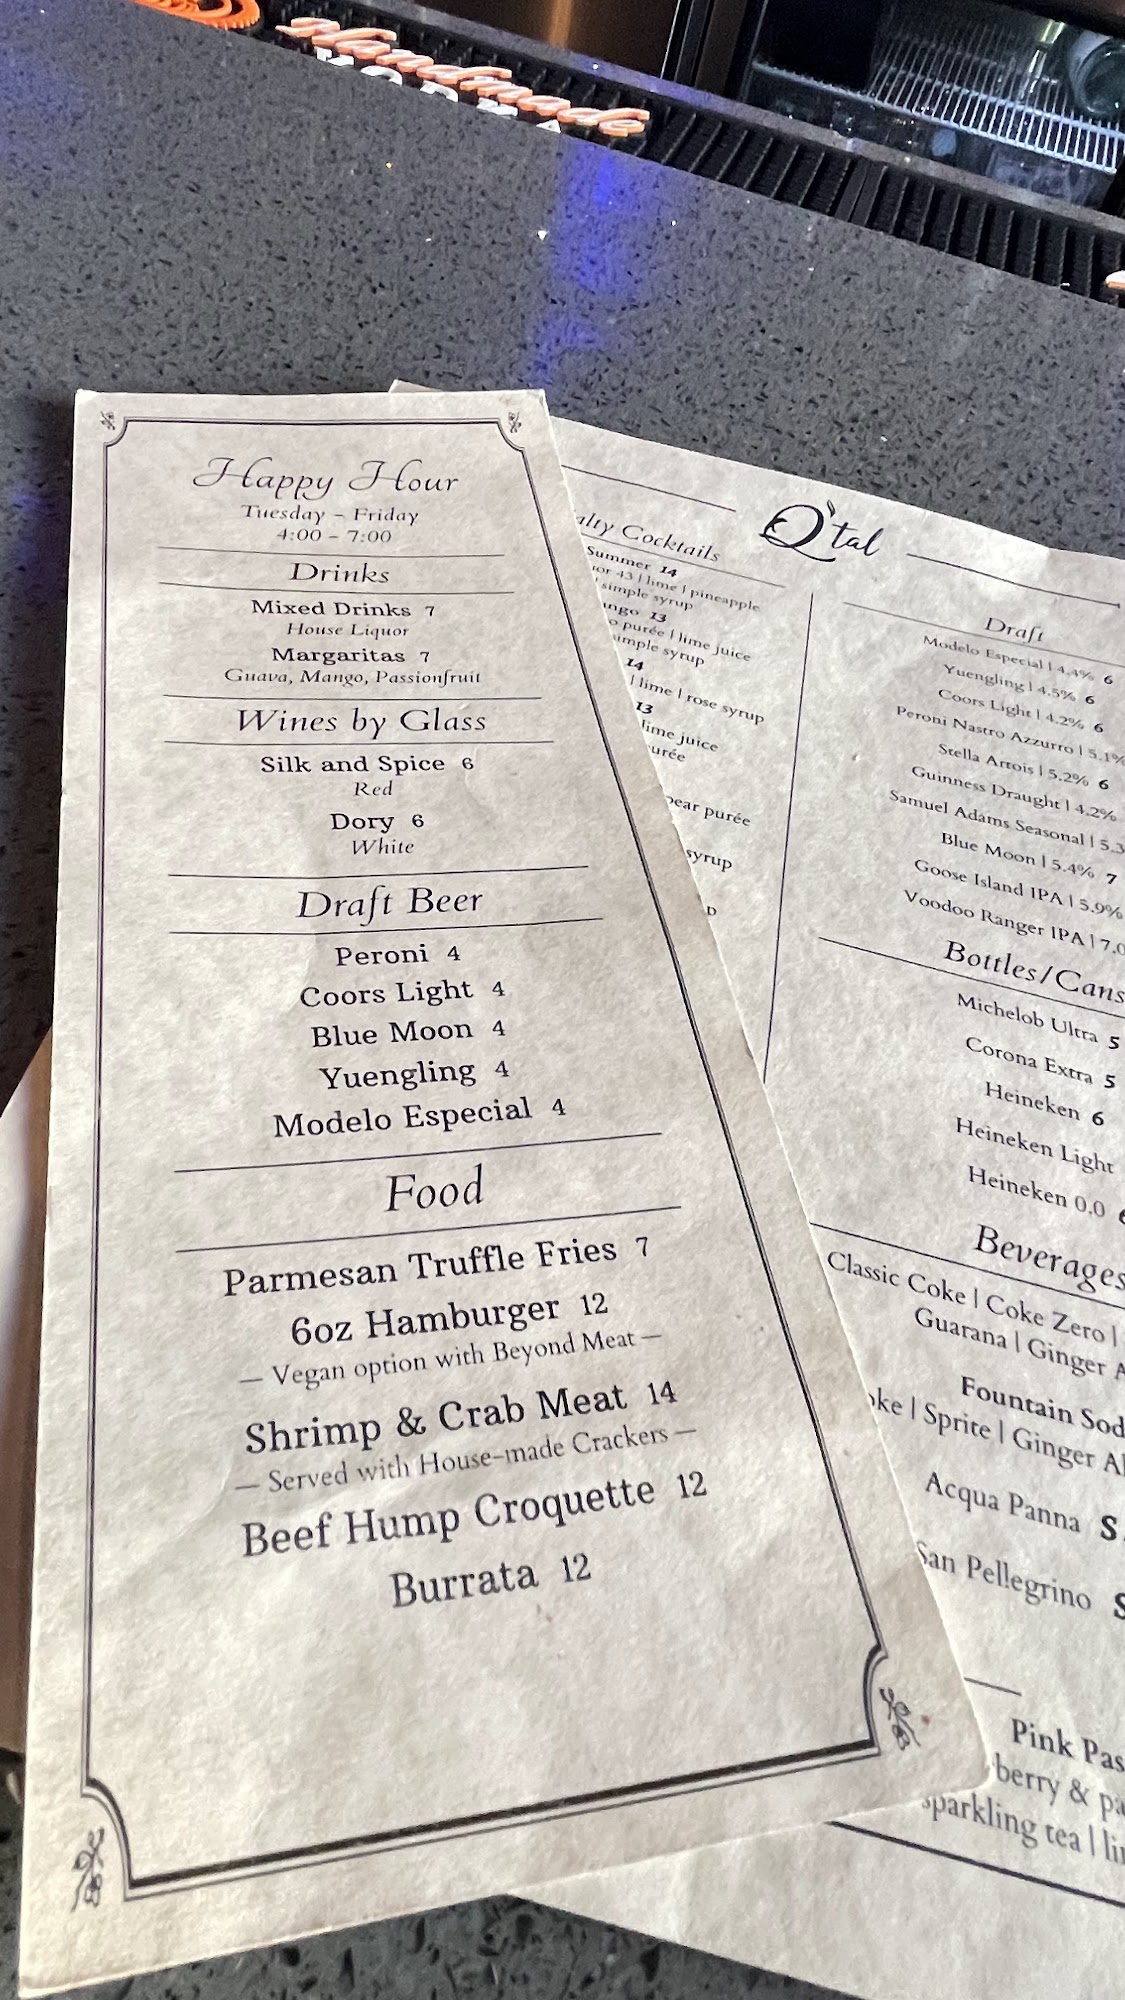 Handmade
VODKA
Happy Hour
Tuesday – Friday
4:00 – 7:00
Drinks
Mixed Drinks 7
House Liquor
Margaritas 7
Guava, Mango, Passionfruit
Wines by Glass
Silk and Spice 6
Red
Dory 6
White
Draft Beer
Peroni 4
Coors Light 4
Blue Moon 4
Yuengling 4
Modelo Especial 4
Food
Parmesan Truffle Fries 7
6oz Hamburger 12
— Vegan option with Beyond Meat —
Shrimp & Crab Meat 14
— Served with House-made Crackers —
Beef Hump Croquette 12
Burrata 12
Q'tal
Cocktails
Summer 14
43 | lime | pineapple
simple syrup
13
purée | lime juice
simple syrup
14
| lime | rose syrup
13
lime juice
purée
pear purée
syrup
Draft
Modelo Especial | 4.4% 6
Yuengling | 4.5% 6
Coors Light | 4.2% 6
Peroni Nastro Azzurro | 5.1%
Stella Artois | 5.2% 6
Guinness Draught | 4.2%
Samuel Adams Seasonal | 5.3
Blue Moon | 5.4% 7
Goose Island IPA | 5.9%
Voodoo Ranger IPA | 7.0
Bottles/Cans
Michelob Ultra 5
Corona Extra 5
Heineken 6
Heineken Light
Heineken 0.0
Beverages
Classic Coke | Coke Zero |
Guarana | Ginger A
Fountain Sod
oke | Sprite | Ginger Al
Acqua Panna S
San Pellegrino S
Pink Pas
berry & pa
sparkling tea | li